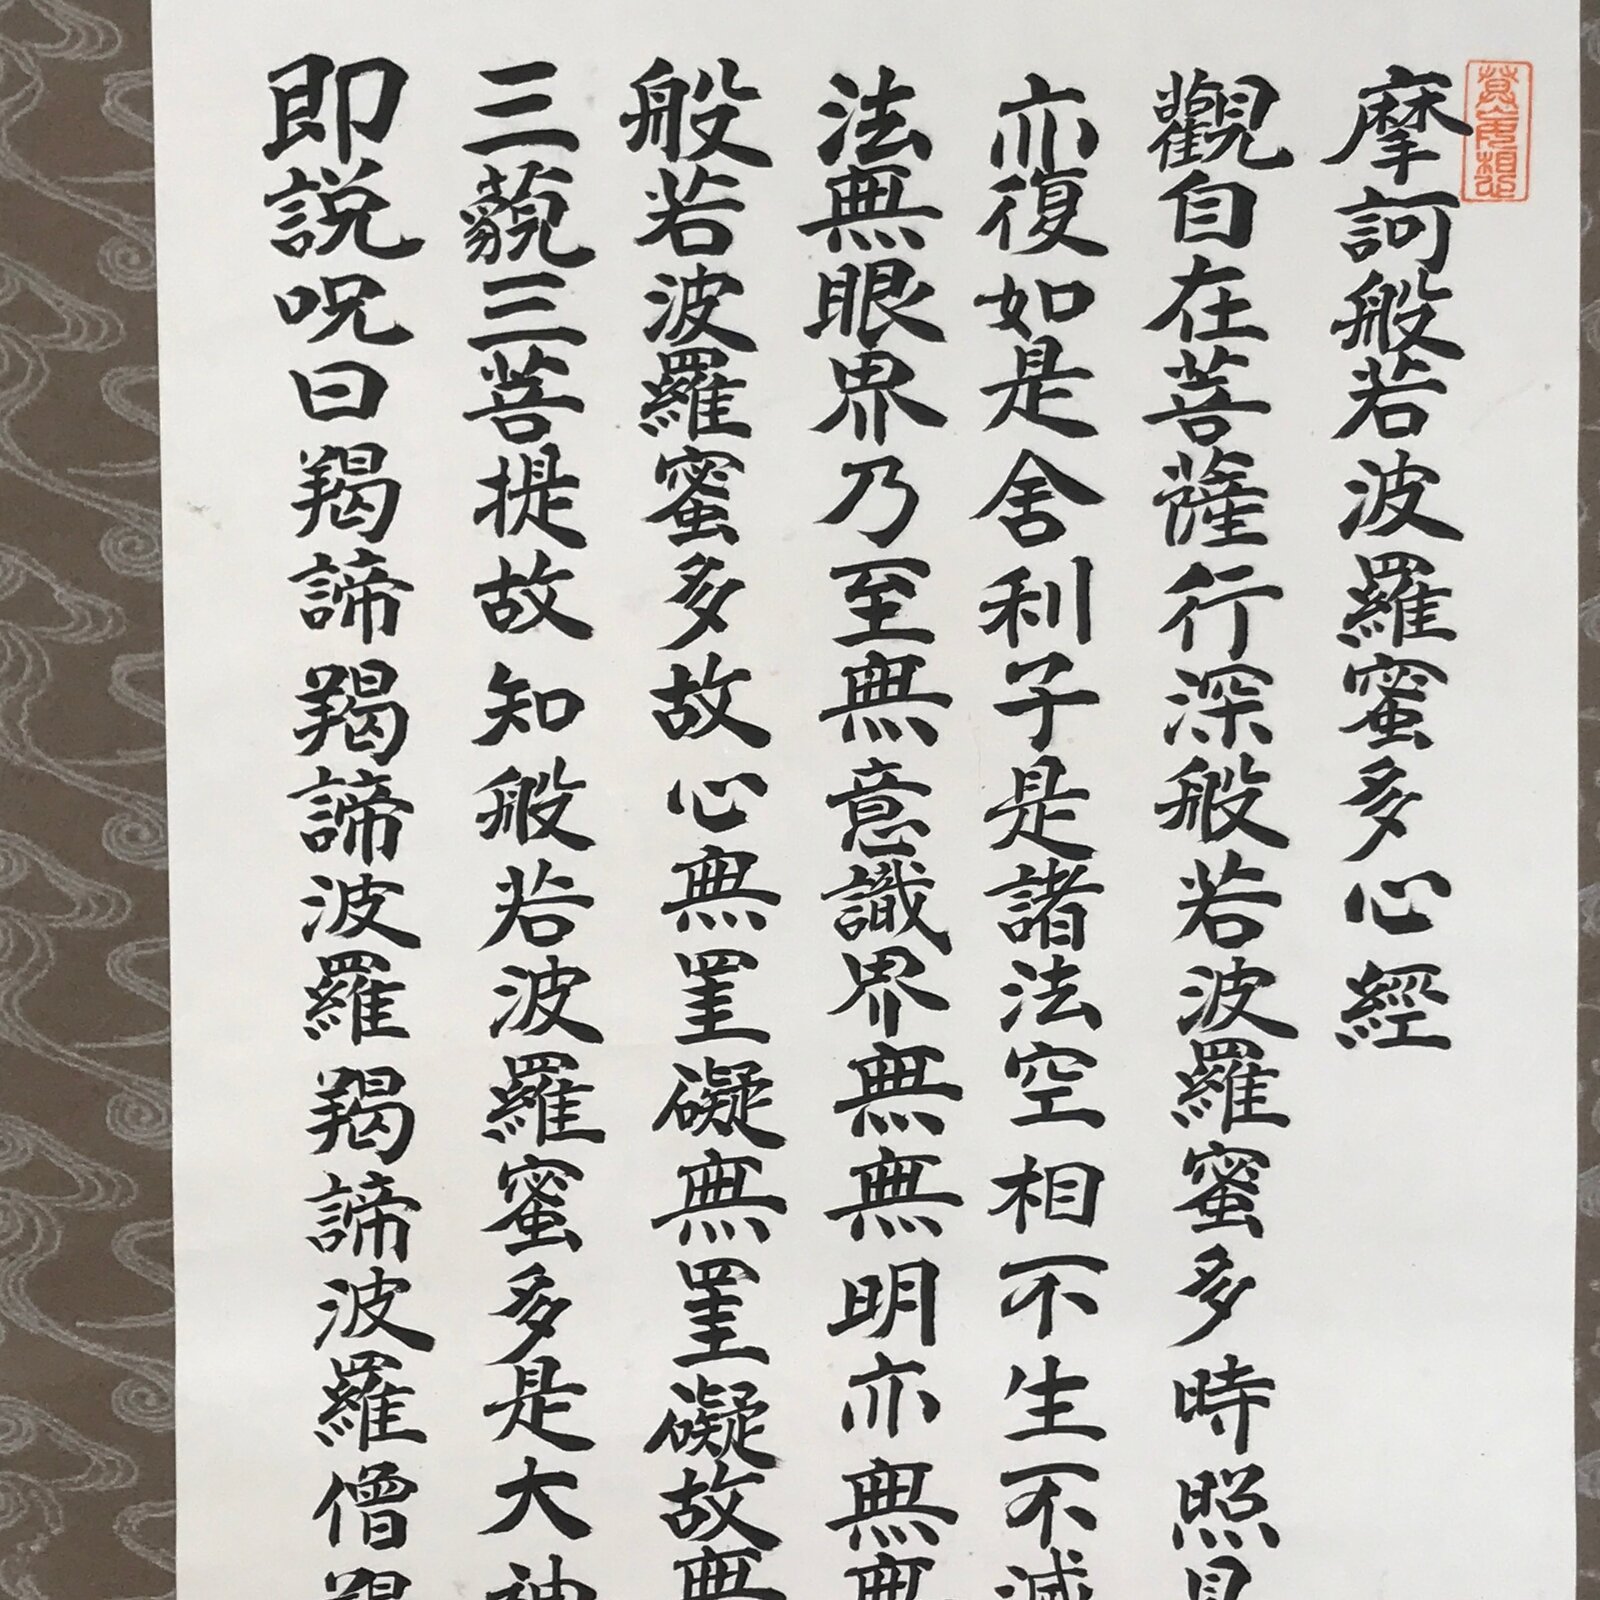 摩訶般若波羅蜜多心經
觀自在菩薩行深般若波羅蜜多時照見
亦復如是舍利子是諸法空相不生不滅
法無眼界乃至無意識界無無明亦無無
般若波羅蜜多故心無罣礙無罣礙故無
三藐三菩提故知般若波羅蜜多是大神
即説呪曰羯諦羯諦波羅羯諦波羅僧羯